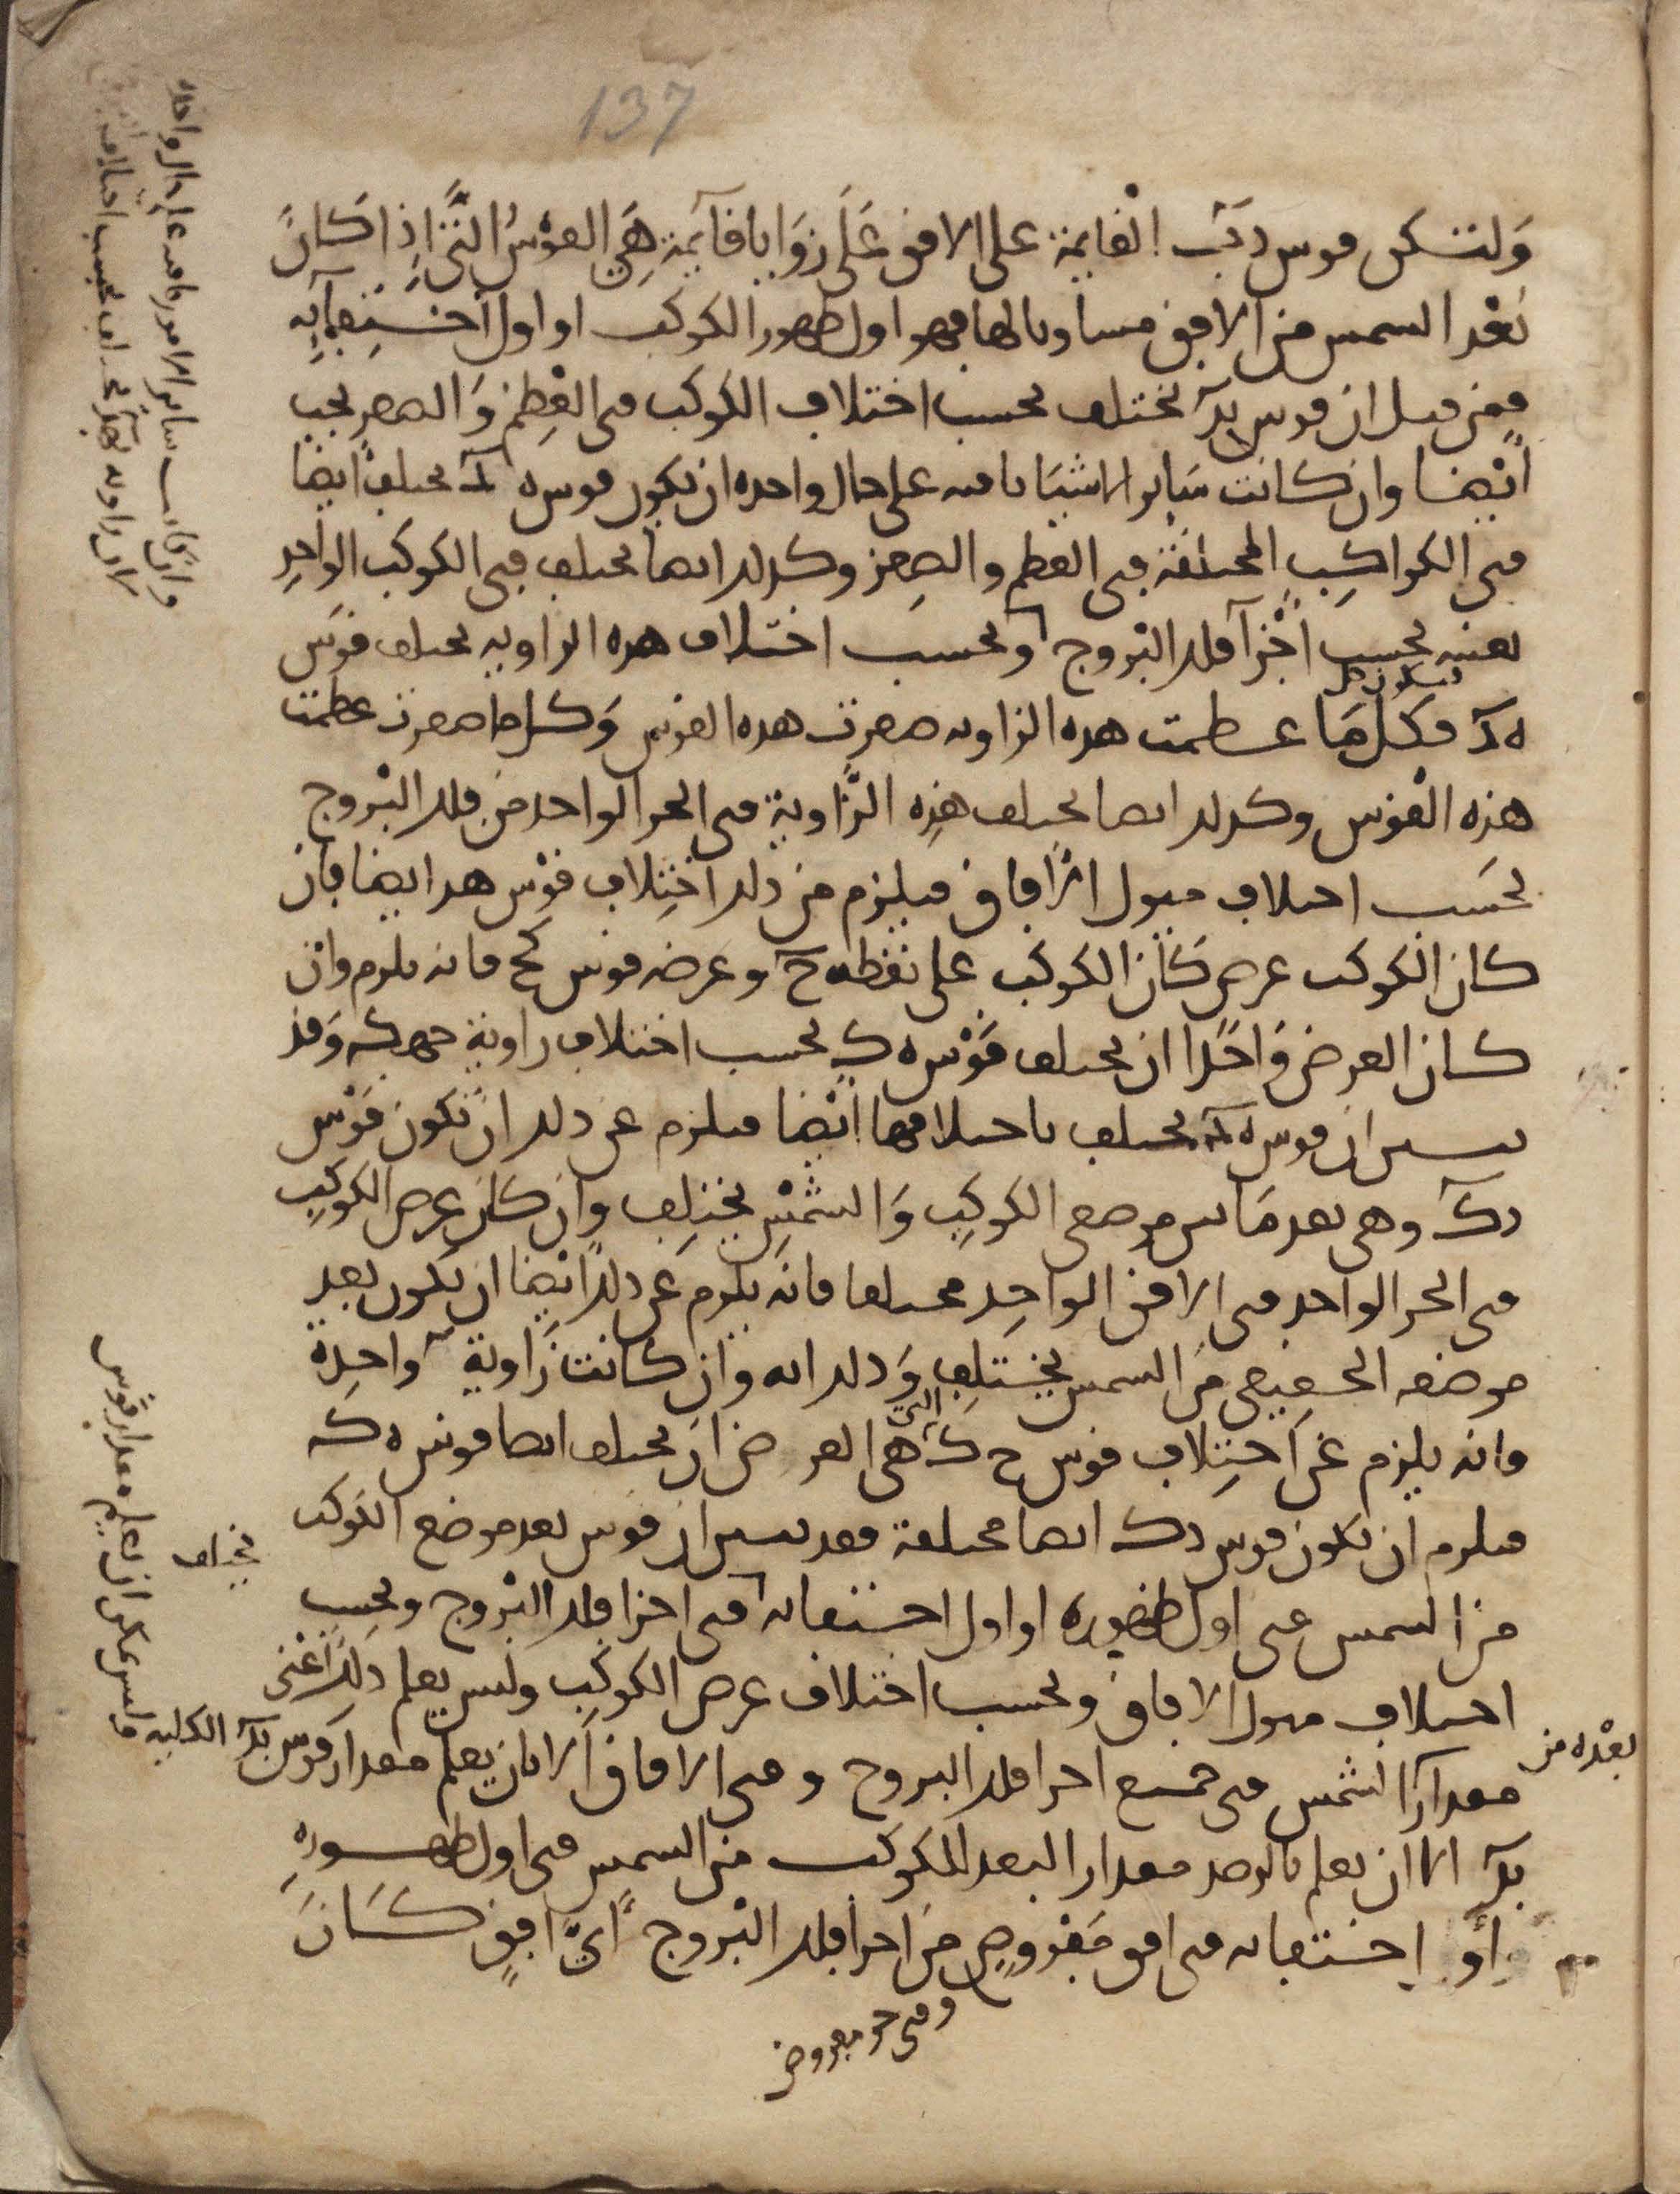 137
وَلتكن قوس دب القايمة على الافق عَلَى زوَايا قآيمة هِيَ القوْسُ الَّتي اذا كَانَ
بُعْد الشمس من الافق مساويا لها فهو اول ظهور الكوكب او اول اختِفآيِهِ
فمن قبل ان قوس بد تختلف بحسب اختلاف الكوكب في العِظم وَالصغر يجب
ايْضا وان كانت سَاير الاشيَا باقيه على حال واحده ان يكون قوس ه د مختلفًا ايضا
في الكواكِبِ المختلفة في العظم والصِغر وكذلك ايضا تختلف في الكوكب الواحِدِ
بعينه بحسب اجْزآ فلك البْروج وبحسب اختلاف هذه الزاويه تختلف قوس
ه د فكل مَا عظمت هذه الزاويه صغرت هذه القوس وَكل ما صغرت عظمت
هذه القوْس وكذلك ايضا تختلف هذِه الزَّاوية في الجز الواحد من فلك البْروج
بحَسب اختلاف ميول الآفاق فيلزم من ذلك اختِلاف قوْس هد ايضا فان
كان للكوكب عرض كان الكوكب على نقطه ح وعرضه قوس كح فانه يلزم وان
كان العرض وَاحدًا ان تختلف قوْس ه ك بحسب اختلاف زاوية ح ه ك وَقد
تبين ان قوس ه د تختلف باختلافها ايْضا فيلزم عن ذلك ان تكون قوْس
دك وهي بعد مَا بين موضعي الكوكِب وَالشمْسِ يختلِف وان كان عرض الكوكِبِ
في الجز الواحد في الافق الواحِد مختلفا فانه يلزم عن ذلك ايضا ان يكون بعد
موضعه الحقيقي مَن الشمس يختلِف وَذلك انه وان كانت زَاوية ه واحِدة
فانه يلزم عن اختِلاف قوس ح ك التي هي العرض ان تختلف ايضا قوس ه ك
فيلزم ان تكون قوس دك ايضا مختلفة فقد تبين ان قوس بعد موضع الكوكب
يختلف
من الشمس في اول ظهوره او اول اختفايه في اجزا فلك البْروج وبحسب
اختلاف ميول الافاق وبحسب اختلاف عرض الكوكب وليس يعلم ذلكَ اعْني
بعْده من
مقدار الشمس في جميع اجزا فلك البروج وفي الافاق الا بان يعلم مقدار قوس بد الكليه وليس يمكن ان يعلم مقدار قوس
بد الا ان يعلم بالرصد مقدار البعد للكوكب من الشمس في اول ظهورِهِ
أو اختفايه في افق مَفْروضٍ من اجزا فلك البْروج ايّ افقٍ كَانَ
وفي جز مفروض
وان كانت ساير الامور باقيه على حال واحده